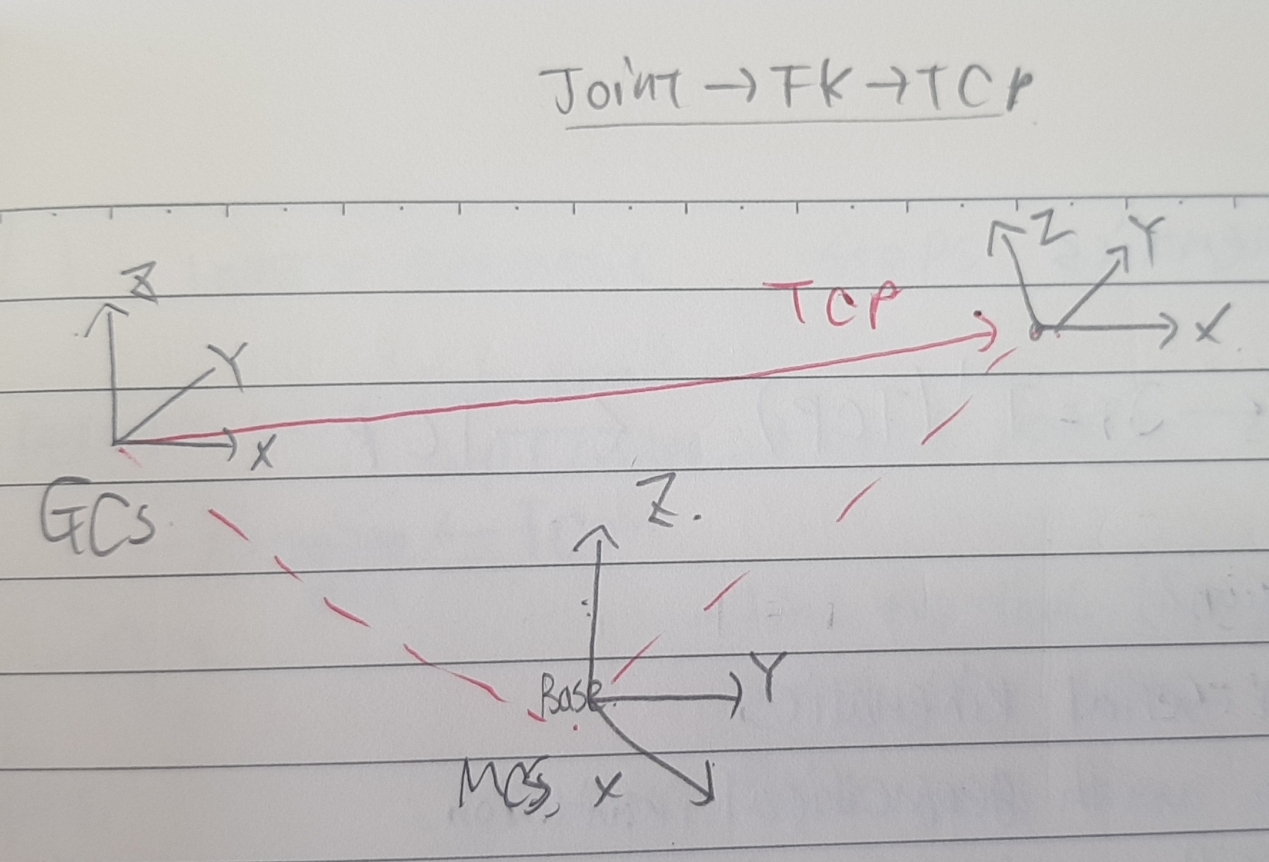 Joint → FK → TCP
Z
Y
X
GCS
TCP
Z
Y
X
Z.
Y
Base
MCS, X